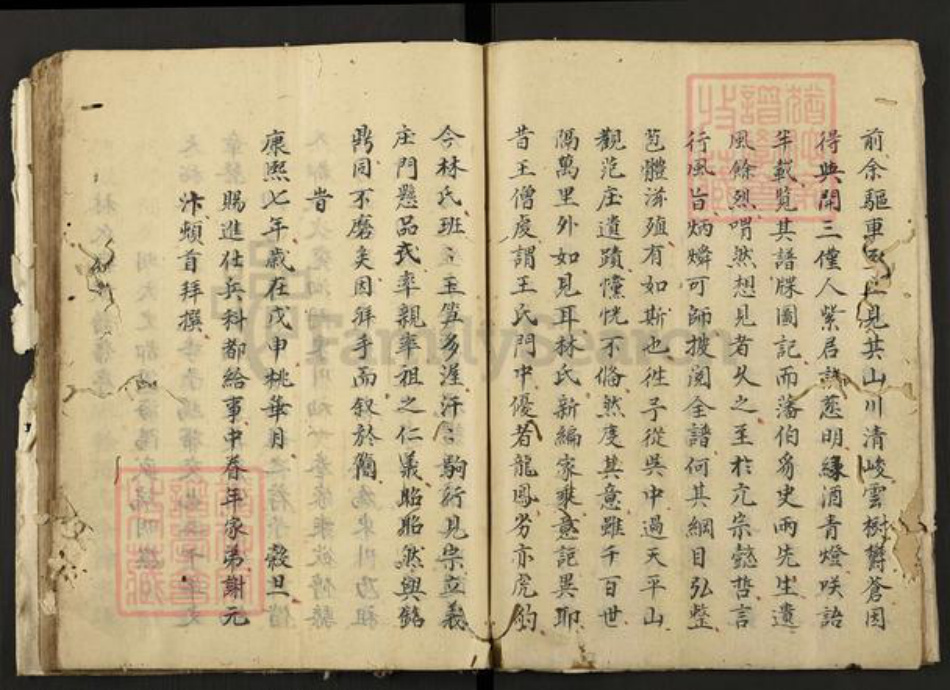 前余驅車 見其山川清峻雲樹欝蒼因
得與開三僅人紫居 蔥明緣酒青燈咲語
半載覽其譜牒圖記而藩伯 史兩先生遺
風餘烈喟然想見者久之至於亢宗懿哲言
行風旨炳燐可師披閱全譜何其綱目弘整
苞體滋殖有如斯也徃予從吳中過天平山
觀范庄遺蹟戃恍不俻然度其意雖千百世
隔萬里外如見耳林氏新編家乘 詎異耶
昔王僧虔謂王氏門中優者龍鳳劣亦虎豹
今林氏班 玉笋多渥汗 駒行見宗立義
庄門懸品式率親率祖之仁義昭昭然與銘
鼎同不磨矣因拜手而叙於簡
旹
康熙七年歲在戊申桃華月 穀旦
賜進仕兵科都給事中眷年家弟謝元
汴頓首拜撰
FamilySearch